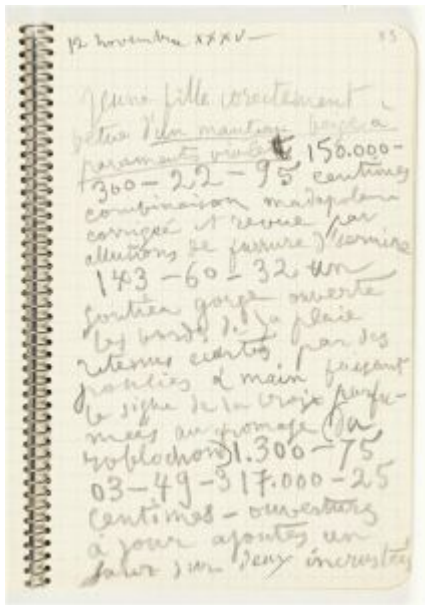 12 novembre XXXV —
Jeune fille corectement
vetue d'un manteau beige a
paraments violets 150.000 -
300 - 22 - 95 centimes
combinaison madapolam
corrigée et revue par
allusions de fourrure d'ermine
143 - 60 - 32 un
soutien gorge ouverte
les bords de la plaie
retenus ecartés par des
poulies a main faisant
le signe de la croix parfu-
mées au fromage (du
roblochon) 1.300 - 75
03 - 49 - 317.000 - 25
centimes - ouvertures
à jour ajoutes un
jour sur deux incrustées